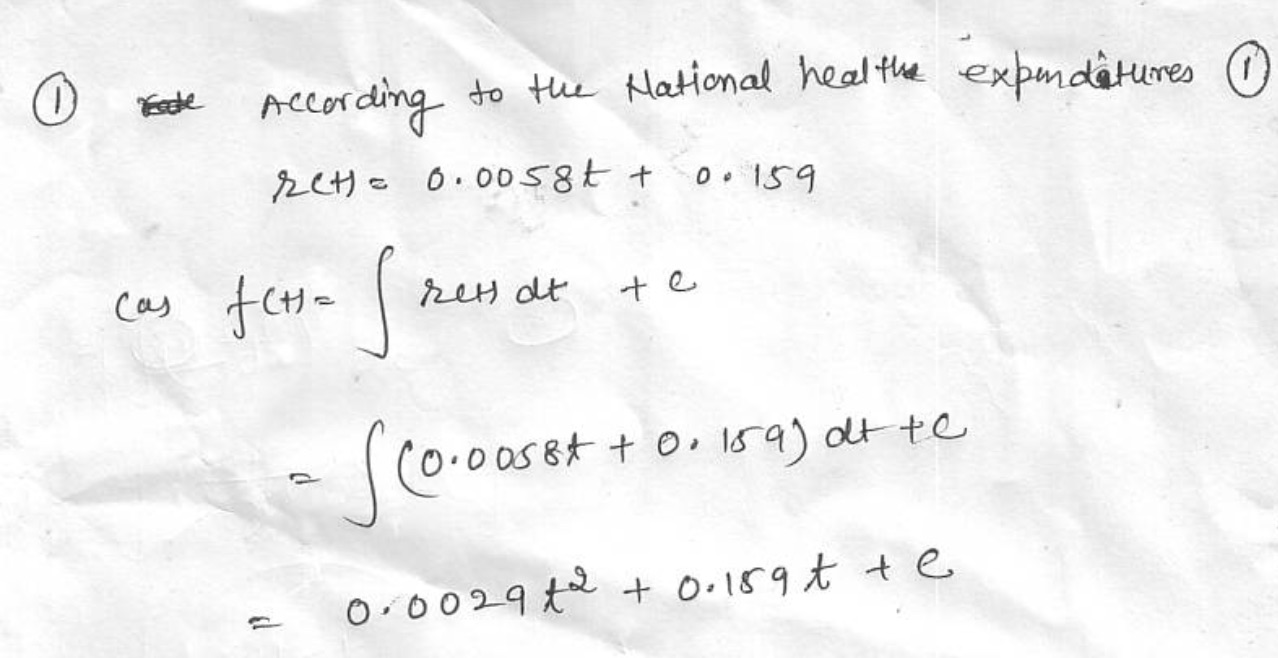 ① According to the National healthe expenditures ①
r(t) = 0.0058t + 0.159
(as f(t) = ∫ r(t) dt + c
= ∫ (0.0058t + 0.159) dt + c
= 0.0029 t² + 0.159 t + c